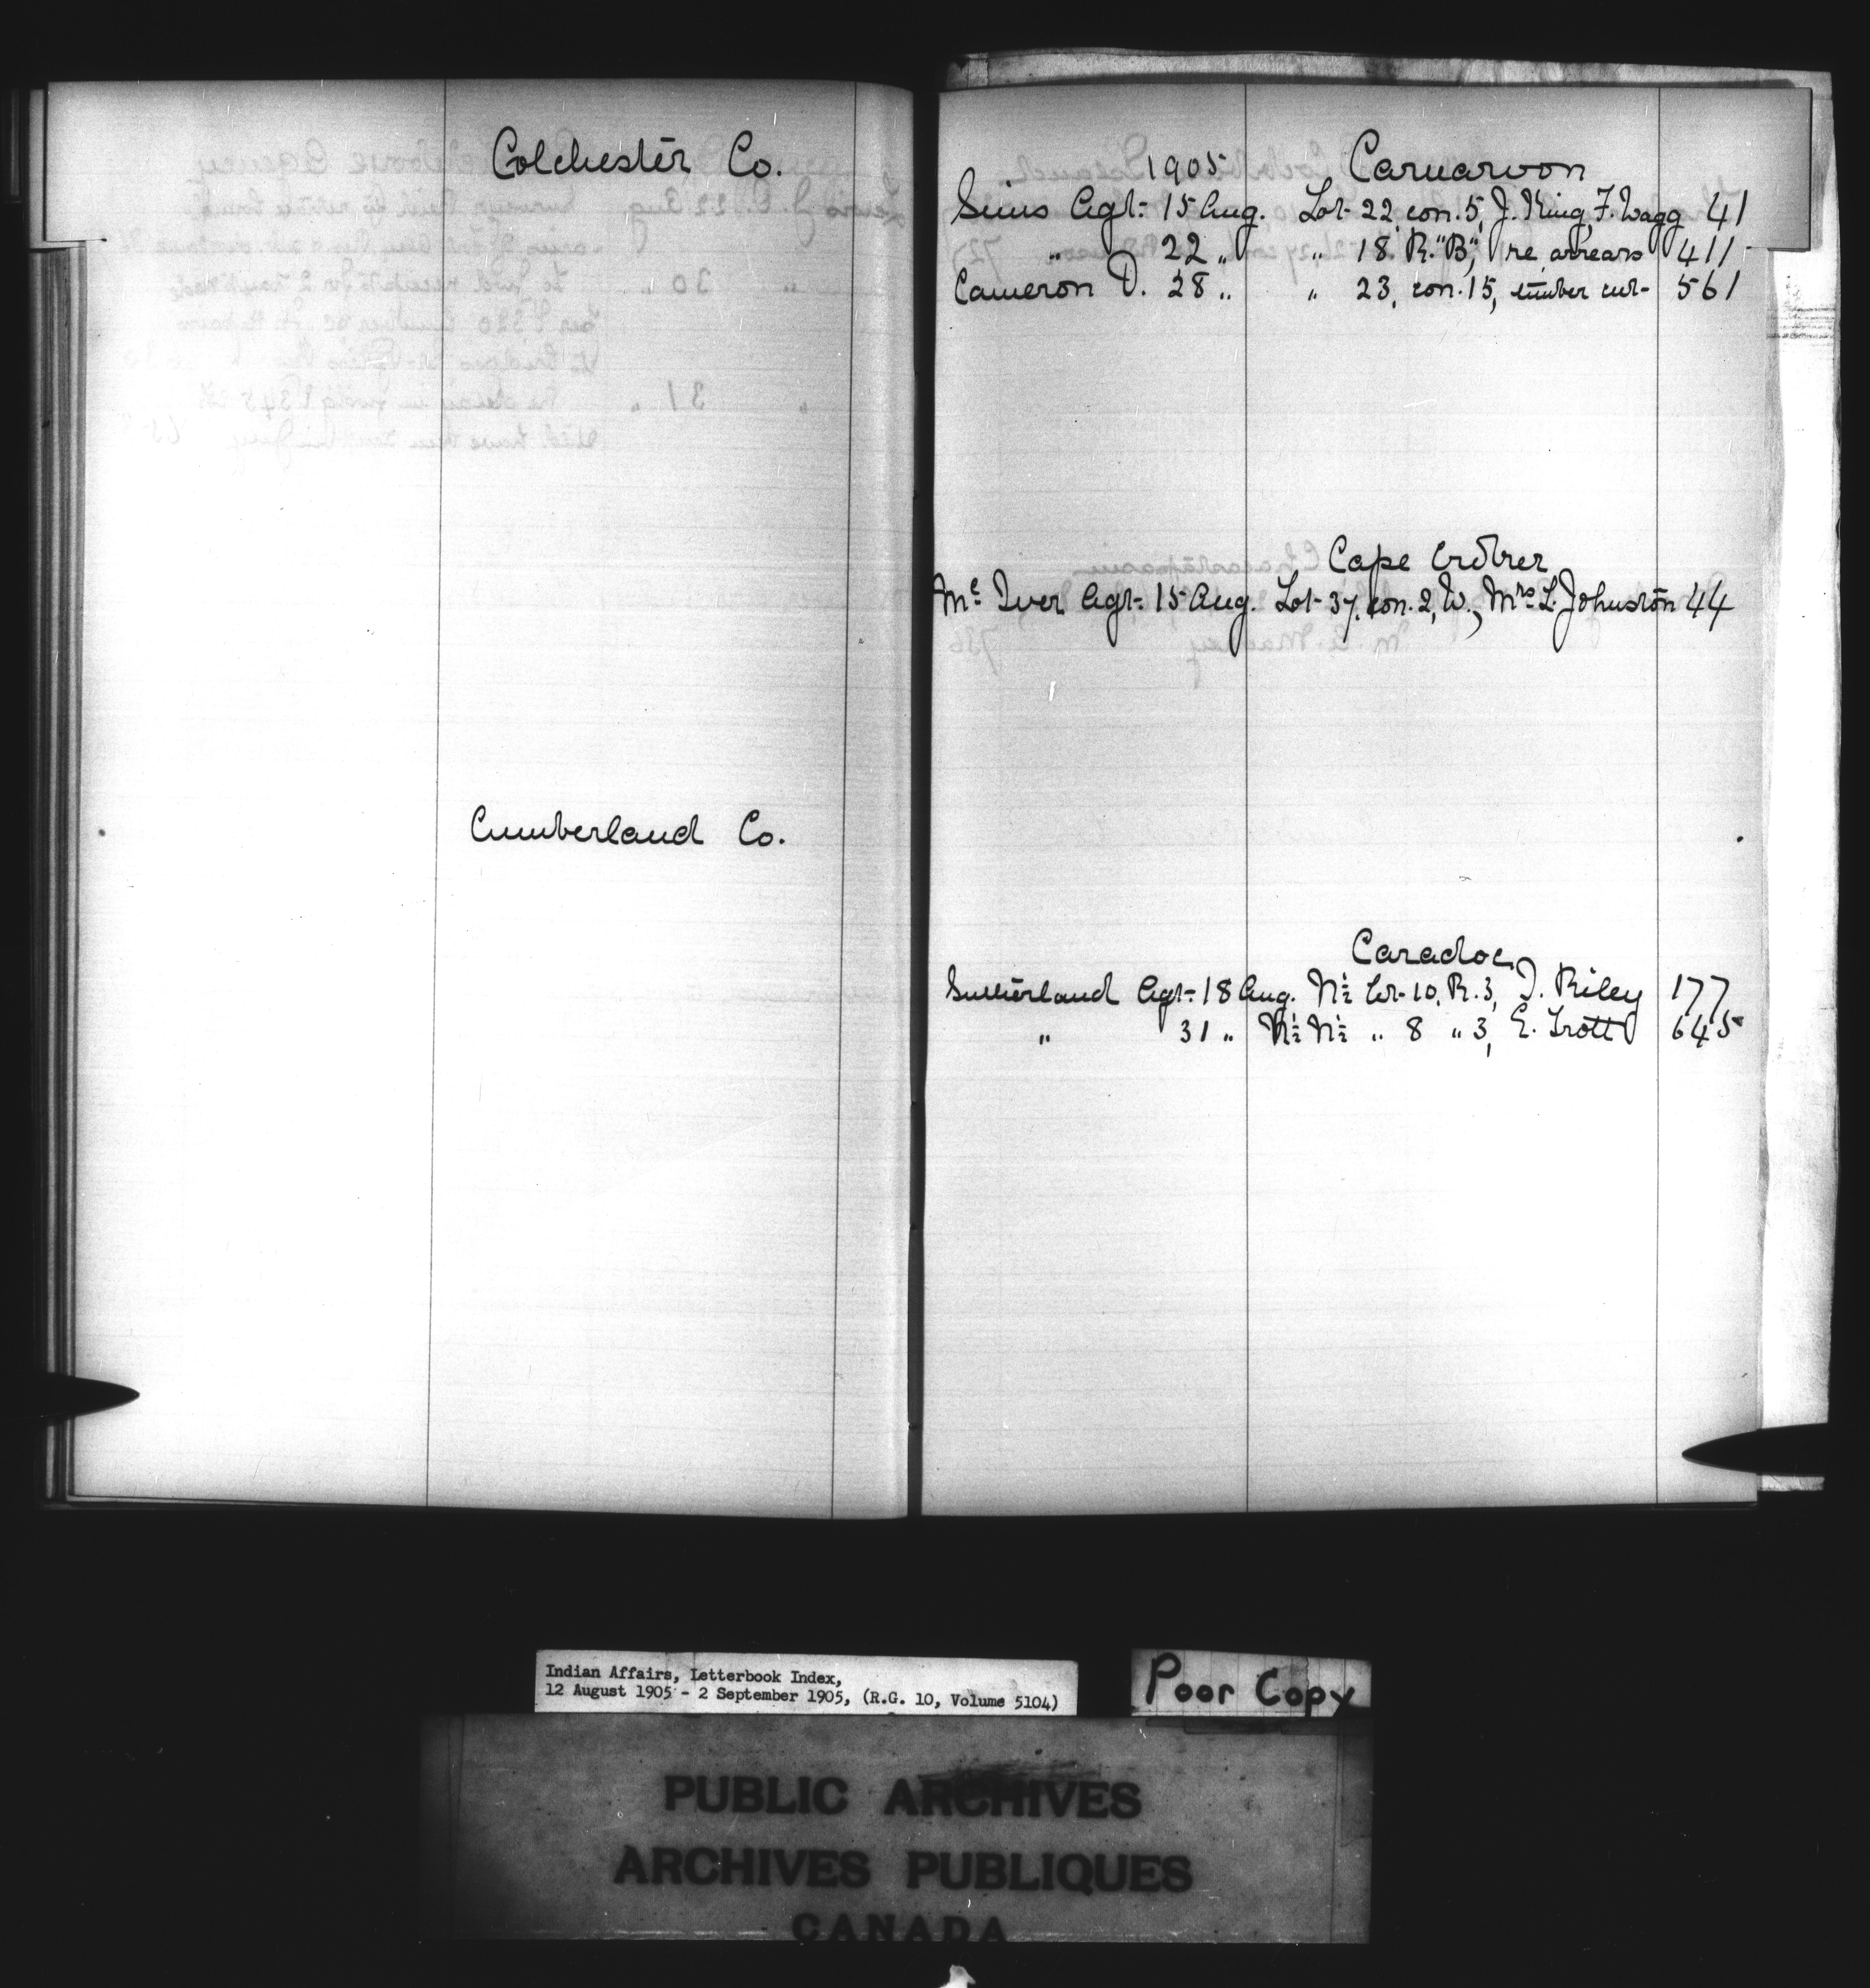 Colchester Co.
Cumberland Co.
1905 Carnarvon
Sims Agt. 15 Aug. Lot 22, con. 5, J. King, F. Wagg 41
" 22 " " 18, R. "B", re arrears 411
Cameron D. 28 " " 23, con. 15, timber cut 561
Cape Croker
McIver Agt. 15 Aug. Lot 37, con. 2, W., Mrs. L. Johnston 44
Caradoc
Sutherland Agt. 18 Aug. N½ Lot 10, R. 3, J. Riley 177
" 31 " N½ N½ " 8 " 3, E. Trott 645
Indian Affairs, Letterbook Index,
12 August 1905 - 2 September 1905, (R.G. 10, Volume 5104)
Poor Copy
PUBLIC ARCHIVES
ARCHIVES PUBLIQUES
CANADA